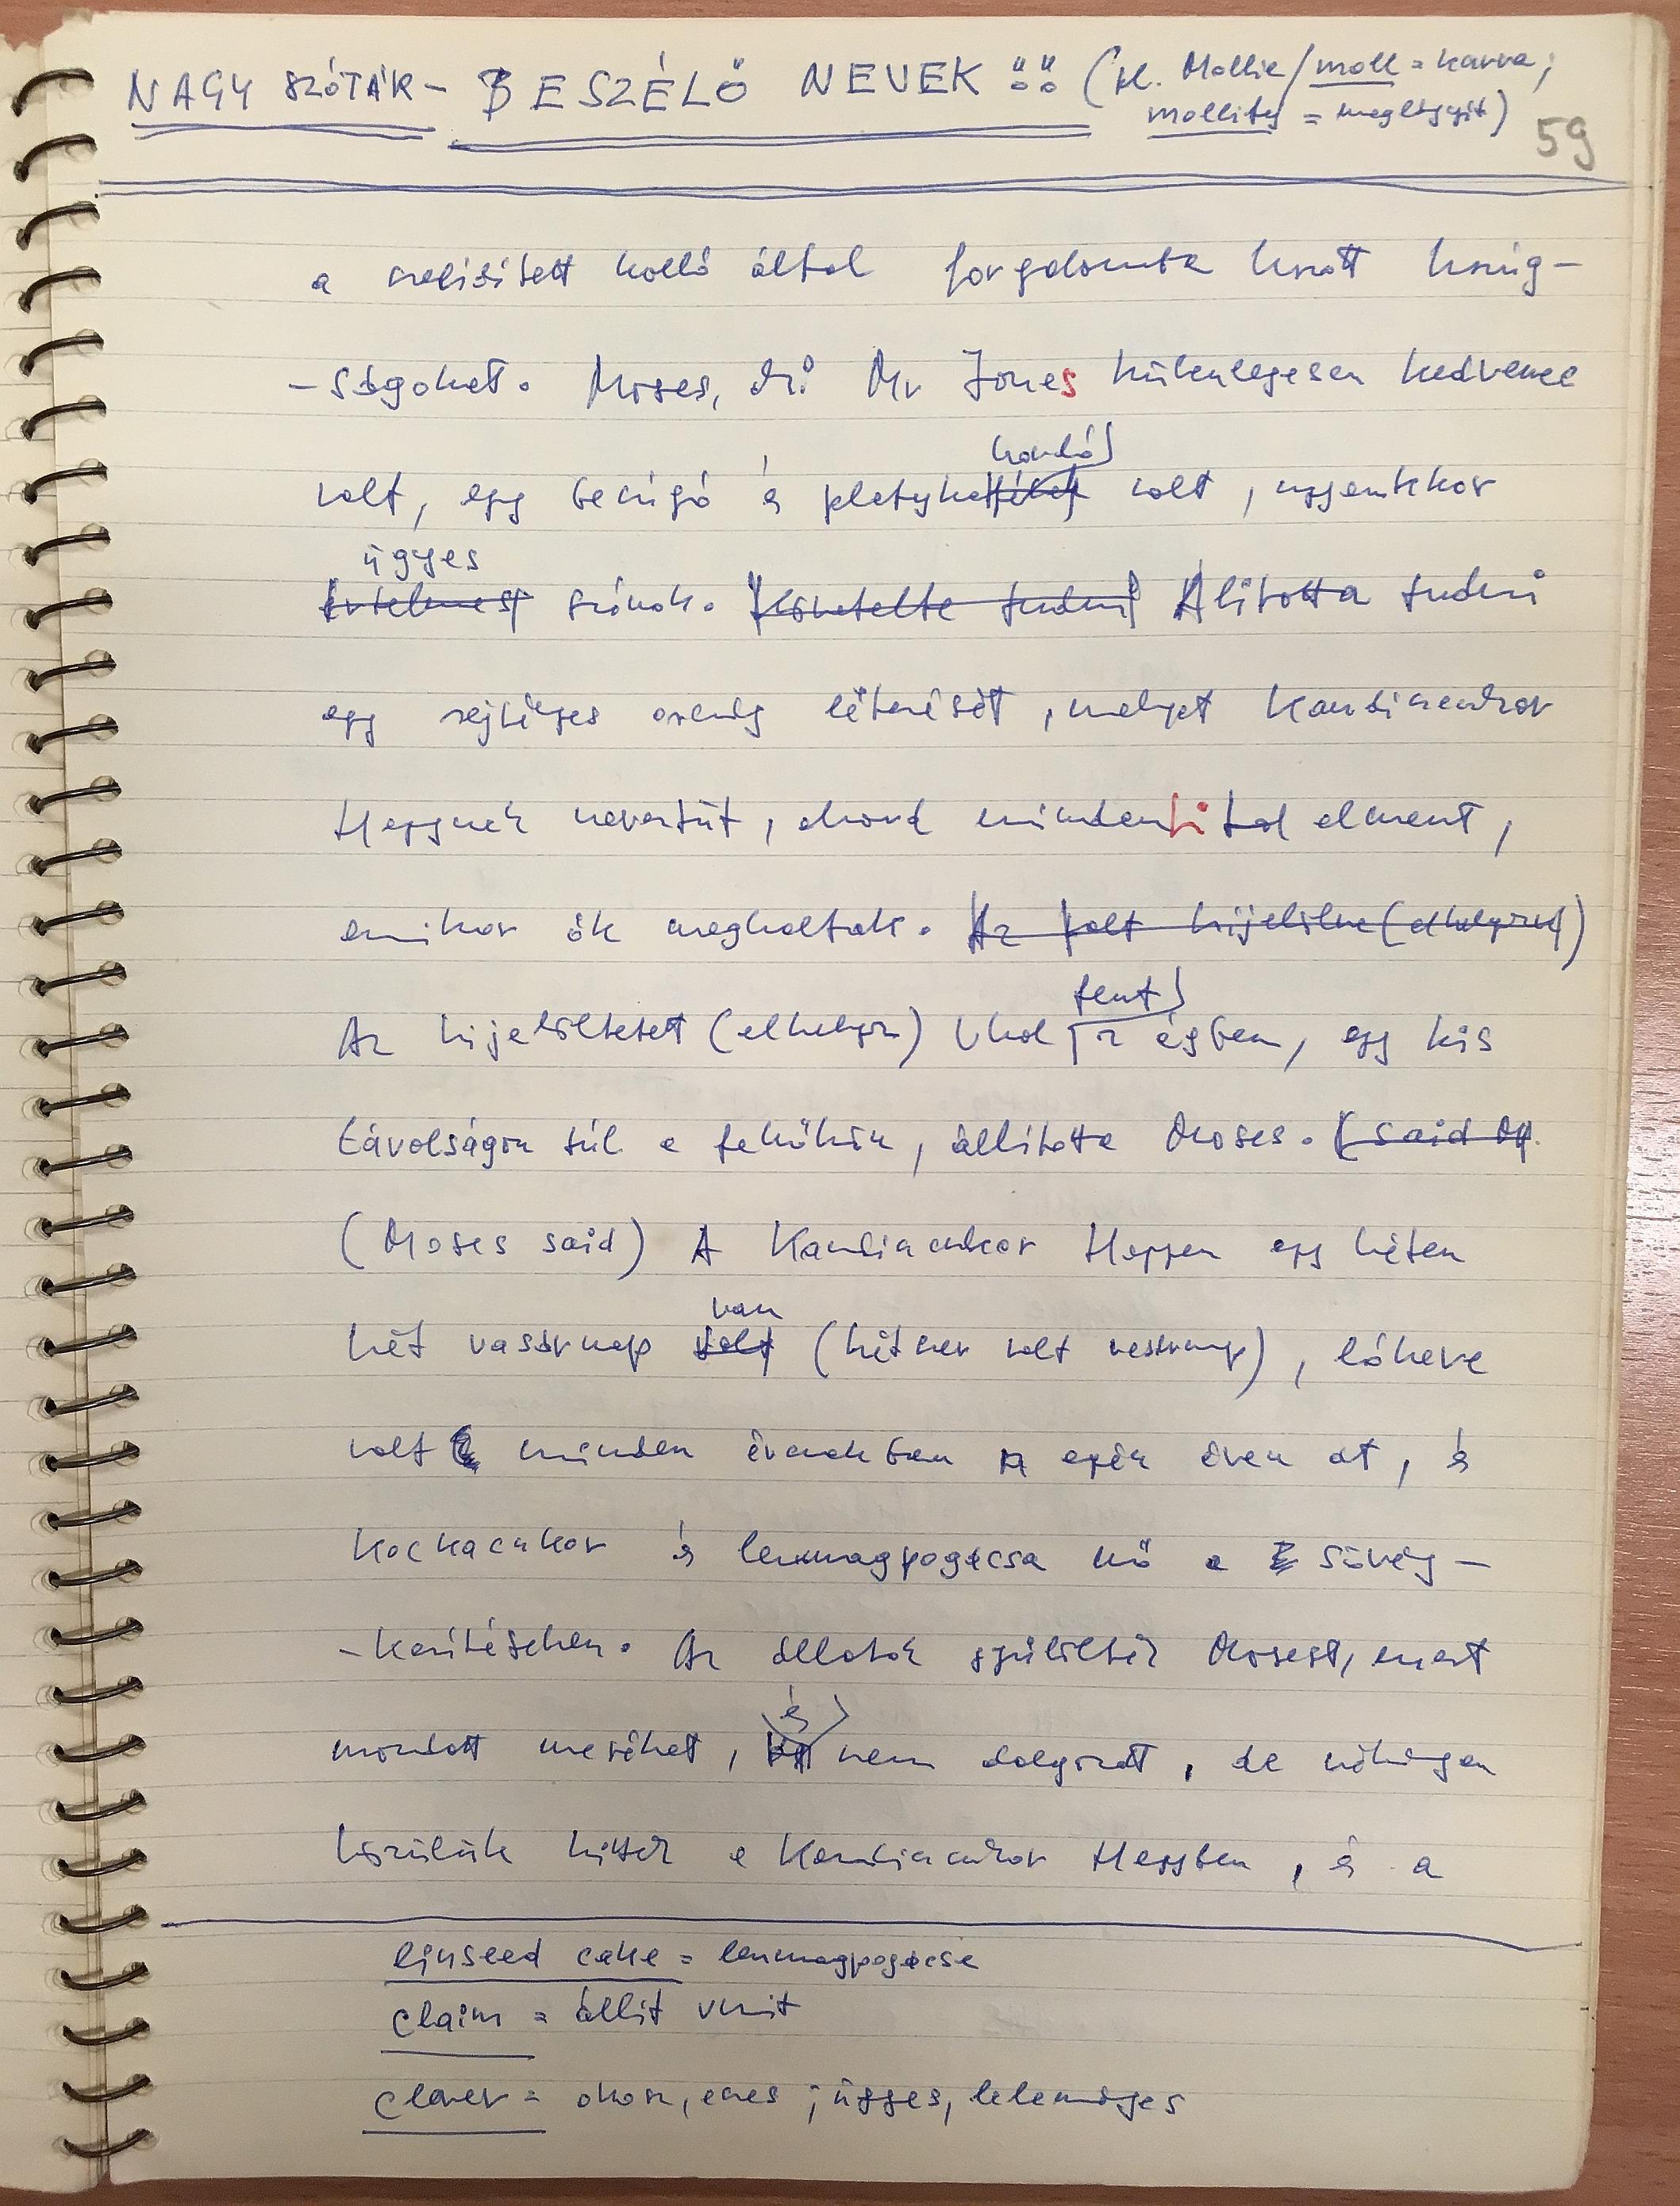 NAGY SZÓTÁR - BESZÉLŐ NEVEK !!!! (pl. Mollie/moll = kurva;
mollify = meglágyít)
59
a szelidített holló által forgalomba hozott hazug-
-ságokat. Moses, aki Mr Jones különlegesen kedvence
hordó
volt, egy besúgó és pletyka volt, ugyanakkor
ügyes
értelmes szónok. Követelte tudni Állította tudni
egy rejtélyes ország létezését, melyet Kandiscukor
Hegynek neveztük, ahová minden állat elment,
amikor ők meghaltak. Az volt kijelölve (elhelyezve)
fent
Az kijelöltetett (elhelyez) vhol az égben, egy kis
távolságra túl a felhőkön, állította Moses. (said M.
(Moses said) A Kandiscukor Hegyen egy héten
van
hét vasárnap volt (hétszer volt vasárnap), lóhere
volt minden évszakban egész éven át, és
kockacukor és lenmagpogácsa nő a sövény-
-kerítéseken. Az állatok gyűlölték Mosest, mert
és
mondott meséket, nem dolgozott, de néhányan
közülük hittek a Kandiscukor Hegyben, és a
linseed cake = lenmagpogácsa
claim = állít vmit
clever = okos, eszes; ügyes, leleményes